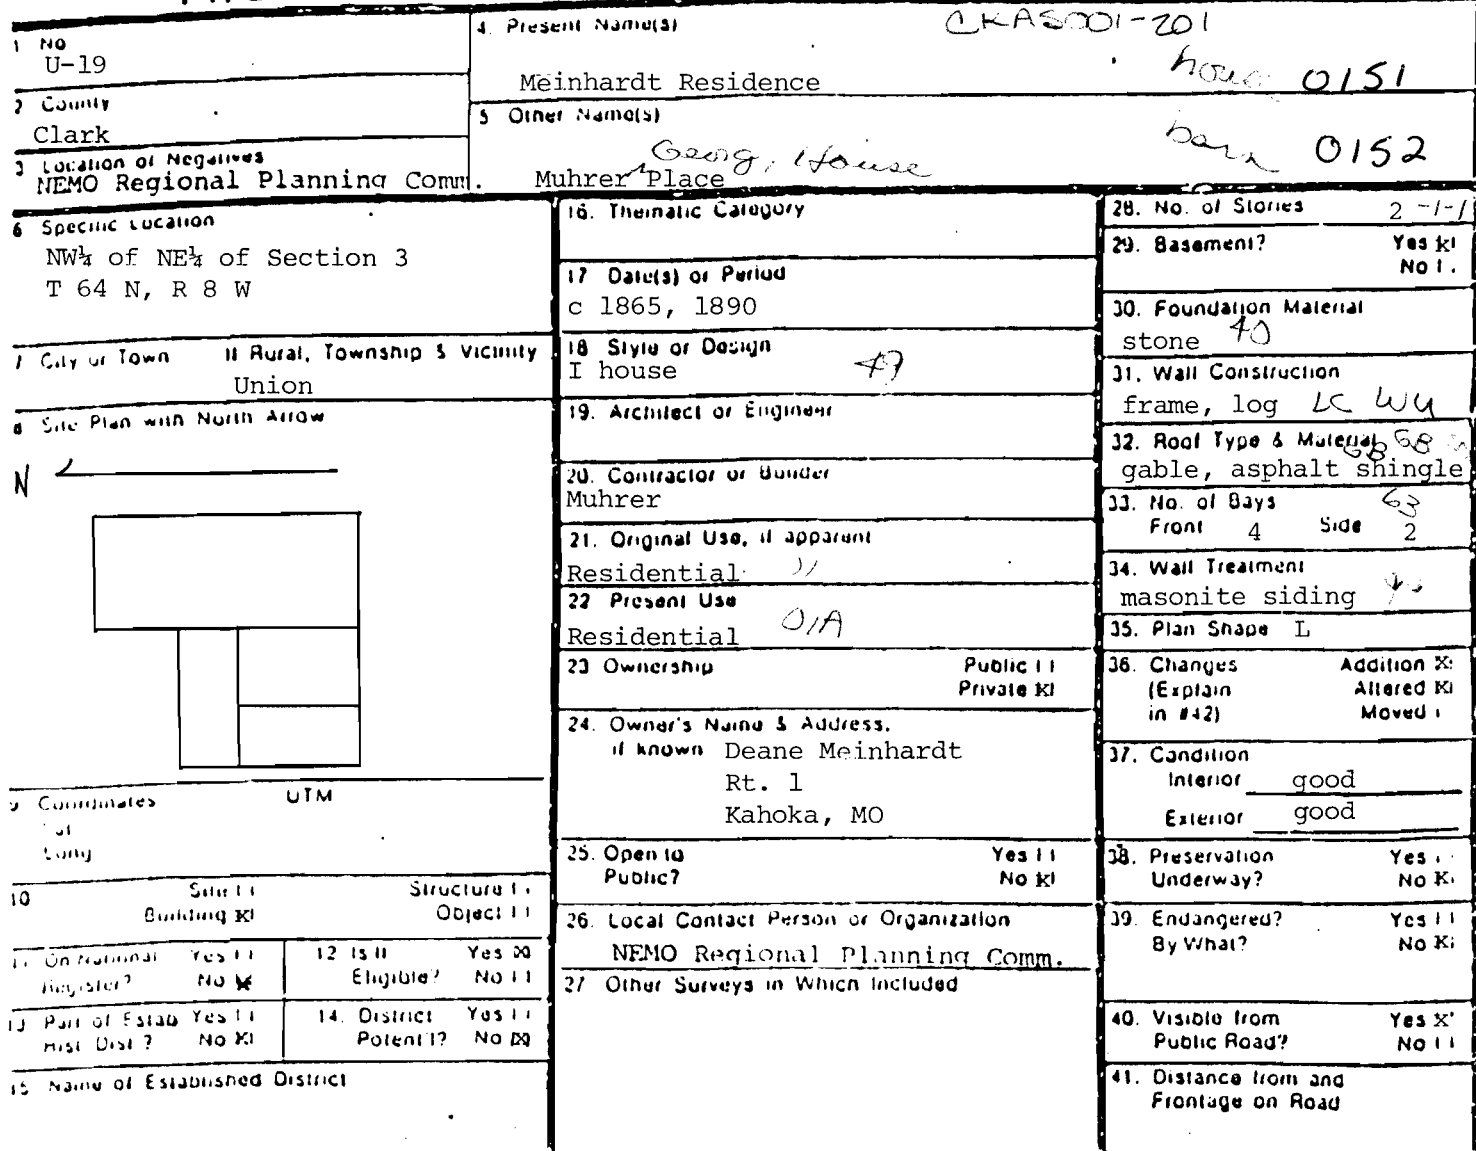 1 No
U-19
2 County
Clark
3 Location of Negatives
NEMO Regional Planning Comm.
4. Present Name(s)
CKAS001-201
Meinhardt Residence
house 0151
5 Other Name(s)
Georg, House
Muhrer Place
barn 0152
6 Specific Location
NW¼ of NE¼ of Section 3
T 64 N, R 8 W
7 City or Town If Rural, Township & Vicinity
Union
8 Site Plan with North Arrow
N
9 Coordinates UTM
Lat
Long
10 Site Structure
Building Object
11 On National Register? Yes No X
12 Is it Eligible? Yes X No
13 Part of Estab Hist. Dist.? Yes No X
14. District Potent'l? Yes No X
15 Name of Established District
16. Thematic Category
17 Date(s) or Period
c 1865, 1890
18 Style or Design
I house 49
19. Architect or Engineer
20. Contractor or Builder
Muhrer
21. Original Use, if apparent
Residential
22 Present Use
Residential 01A
23 Ownership Public
Private X
24. Owner's Name & Address,
if known Deane Meinhardt
Rt. 1
Kahoka, MO
25. Open to Yes
Public? No X
26. Local Contact Person or Organization
NEMO Regional Planning Comm.
27 Other Surveys in Which Included
28. No. of Stories 2 -1-1
29. Basement? Yes X
No
30. Foundation Material
stone 40
31. Wall Construction
frame, log LC WU
32. Roof Type & Material GB
gable, asphalt shingle
33. No. of Bays 63
Front 4 Side 2
34. Wall Treatment
masonite siding
35. Plan Shape L
36. Changes Addition X
(Explain Altered X
in #42) Moved
37. Condition
Interior good
Exterior good
38. Preservation Yes
Underway? No X
39. Endangered? Yes
By What? No X
40. Visible from Yes X
Public Road? No
41. Distance from and
Frontage on Road